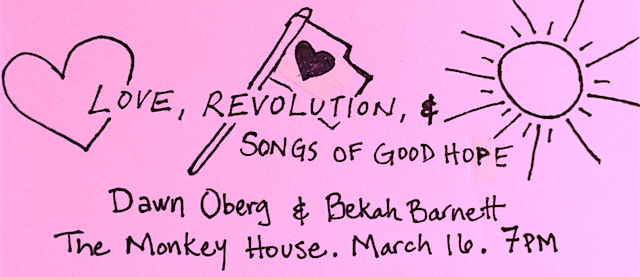 LOVE, REVOLUTION, &
SONGS OF GOOD HOPE
Dawn Oberg & Bekah Barnett
The Monkey House. March 16. 7PM